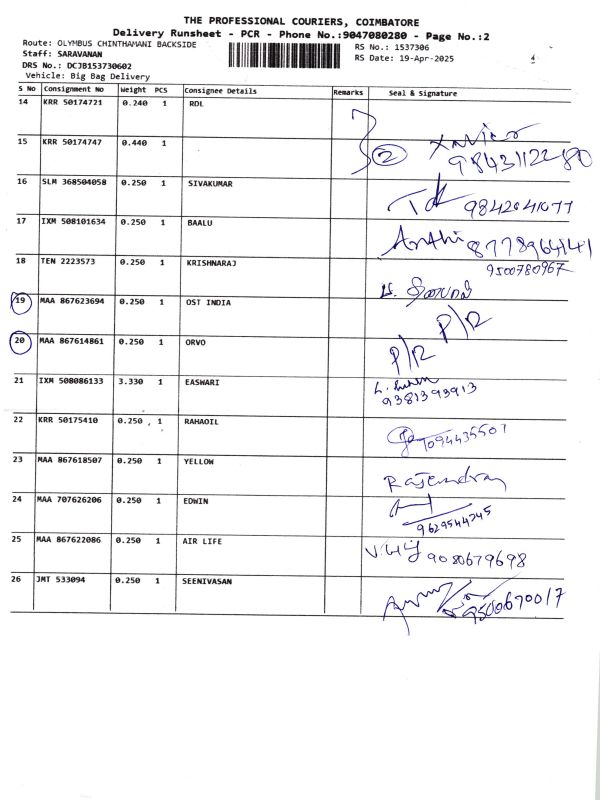 THE PROFESSIONAL COURIERS, COIMBATORE
Delivery Runsheet - PCR - Phone No.:9047080280 - Page No.:2
Route: OLYMBUS CHINTHAMANI BACKSIDE
RS No.: 1537306
Staff: SARAVANAN
RS Date: 19-Apr-2025
DRS No.: DCJB153730602
Vehicle: Big Bag Delivery
S No Consignment No Weight PCS Consignee Details Remarks Seal & Signature
14 KRR 50174721 0.240 1 RDL
15 KRR 50174747 0.440 1 2 Xavier
9843112280
16 SLM 368504058 0.250 1 SIVAKUMAR 9842041077
17 IXM 508101634 0.250 1 BAALU Anthi 8778964141
18 TEN 2223573 0.250 1 KRISHNARAJ 9500780967
19 MAA 867623694 0.250 1 OST INDIA P/R
20 MAA 867614861 0.250 1 ORVO P/R
21 IXM 508086133 3.330 1 EASWARI
9381393913
22 KRR 50175410 0.250 1 RAHAOIL 7094435507
23 MAA 867618507 0.250 1 YELLOW Rajendran
24 MAA 707626206 0.250 1 EDWIN
9629544245
25 MAA 867622086 0.250 1 AIR LIFE 9080679698
26 JMT 533094 0.250 1 SEENIVASAN 9500670017